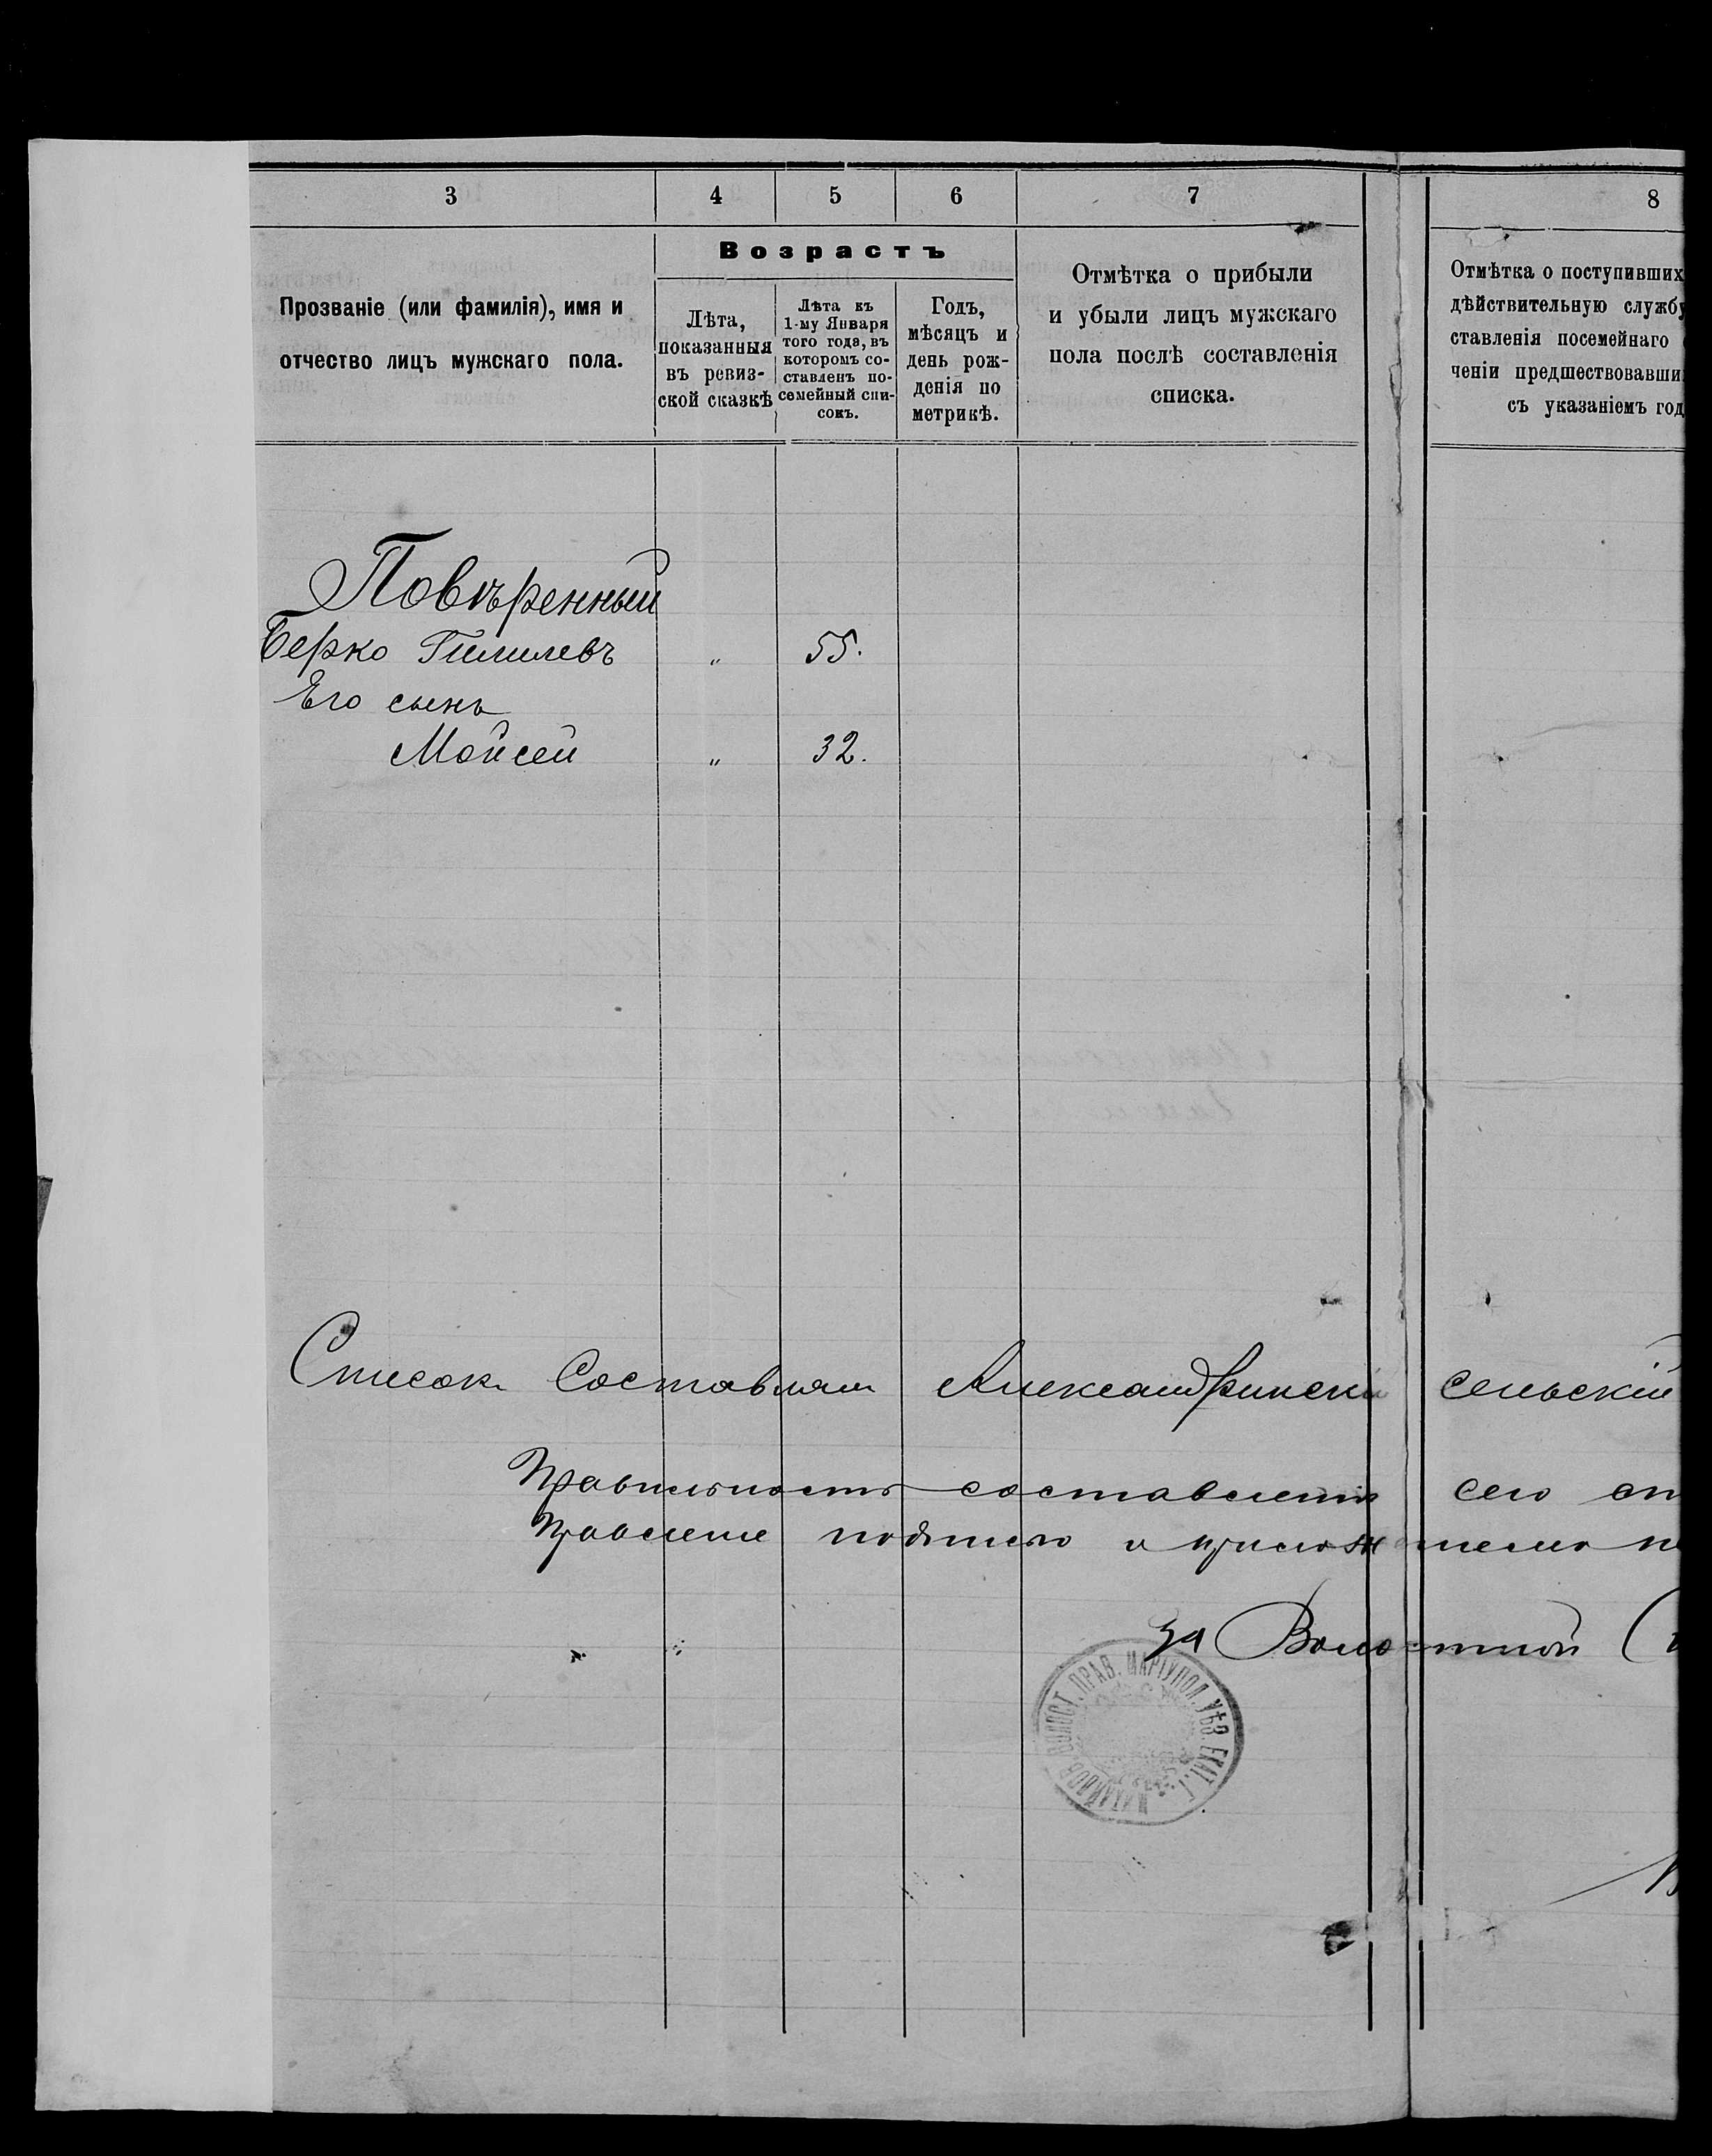 3 4 5 6 7 8
Возрастъ
Прозваніе (или фамилія), имя и
отчество лицъ мужскаго пола.
Лѣта,
показанныя
въ ревиз-
ской сказкѣ
Лѣта къ
1-му Января
того года, въ
которомъ со-
ставленъ по-
семейный спи-
сокъ.
Годъ,
мѣсяцъ и
день рож-
денія по
метрикѣ.
Отмѣтка о прибыли
и убыли лицъ мужскаго
пола послѣ составленія
списка.
Отмѣтка о поступивших
дѣйствительную службу
ставленія посемейнаго
ченіи предшествовавши
съ указаніемъ год
Повѣренный
Берко Гилилевъ " 55.
Его сынъ
Мойсей " 32.
Списокъ Составлялъ Александринскій сельскій
Правильность составленія сего сп
Правленіе подписью и приложеніемъ п
За Волостной
ВОЛОСТ. ПРАВ. МАРІУПОЛ. УѢЗ. ЕКАТ. Г.